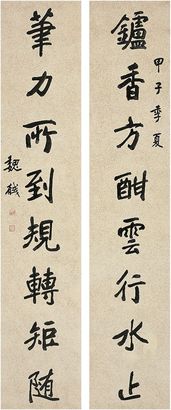 鑪香方酣雲行水止
甲子季夏
筆力所到規轉矩随
魏鍼